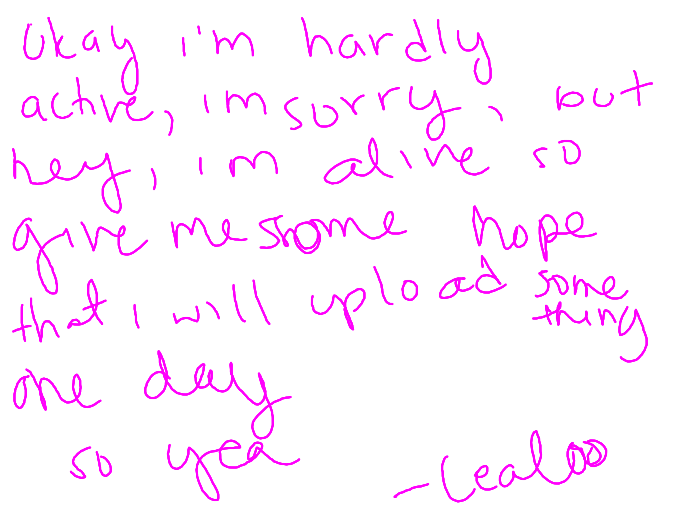 Okay i'm hardly
active, i'm sorry, but
hey, i'm alive so
give me some hope
that i will upload some
thing
one day
so yea
-Lealoo